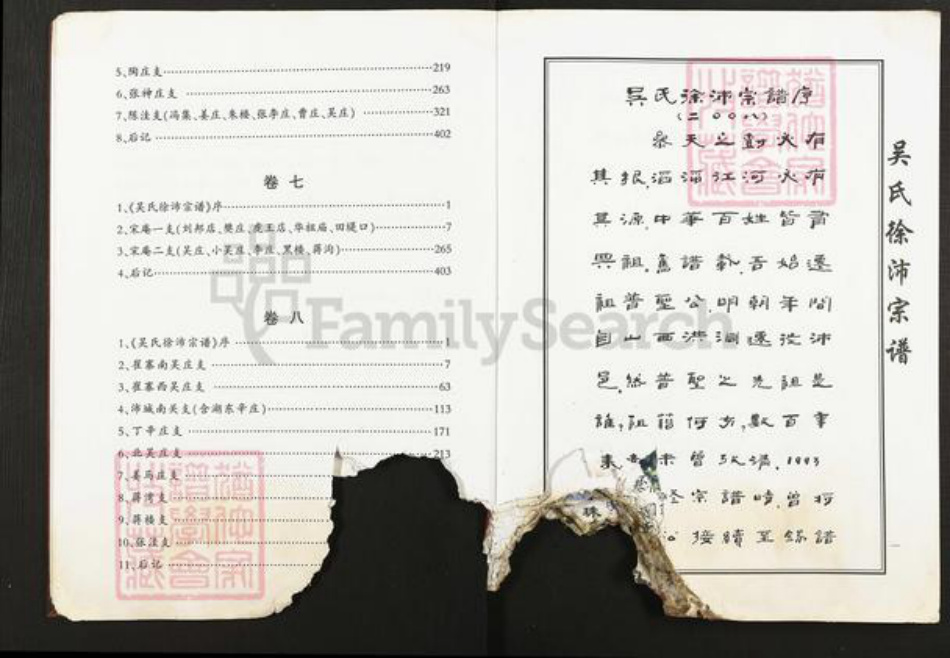 5、陶庄支………219
6、张神庄支………263
7、陈洼支(冯集、姜庄、朱楼、张李庄、曹庄、吴庄)………321
8、后记………402
卷 七
1、《吴氏徐沛宗谱》序………1
2、宋庵一支(刘邦店、樊庄、虎王店、华祖庙、田堤口)………7
3、宋庵二支(吴庄、小吴庄、李庄、黑楼、蒋沟)………265
4、后记………403
卷 八
1、《吴氏徐沛宗谱》序………1
2、崔寨南吴庄支………7
3、崔寨西吴庄支………63
4、沛城南关支(含湖东辛庄)………113
5、丁辛庄支………171
6、北吴庄支………213
7、姜马庄支
8、蒋湾支
9、蒋楼支
10、张洼支
11、后记
吴氏徐沛宗谱序
(二00八)
参天之树必有
其根,滔滔江河必有
其源,中華百姓皆肯
興祖,篤譜執,吾始遷
祖普聖公,明朝年間
自山西洪洞遷徙沛
邑,然普聖之先祖是
誰,祖籍何方,數百年
来 未曾 1993
宗譜時,曾将
接續至 譜
吴氏徐沛宗谱
FamilySearch